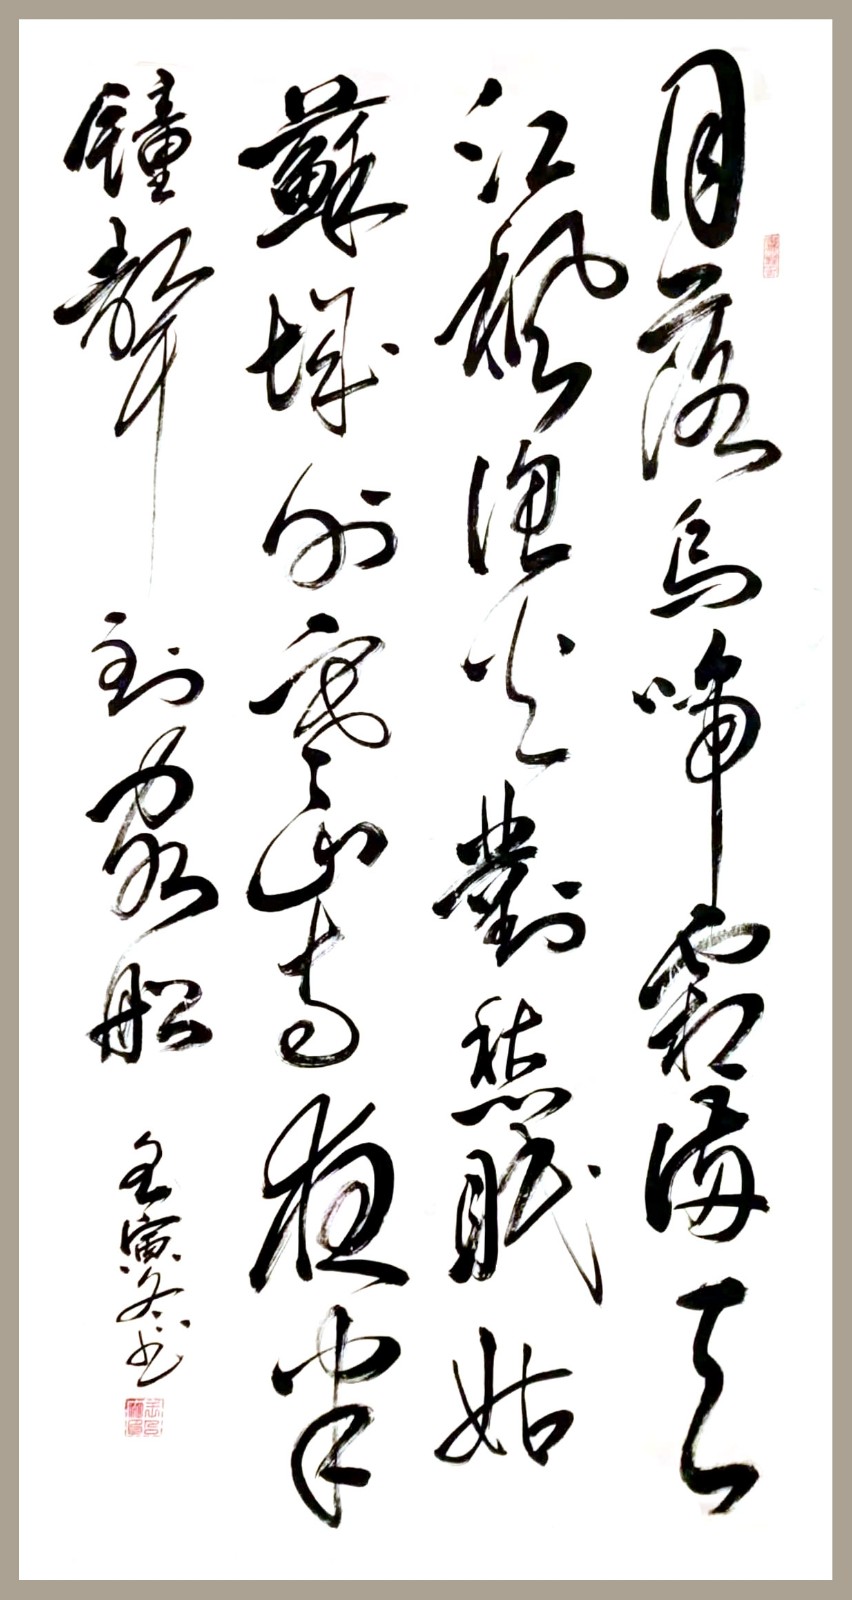 月落烏啼霜滿天
江楓漁火對愁眠姑
蘇城外寒山寺夜半
鐘聲到客船
壬寅冬書